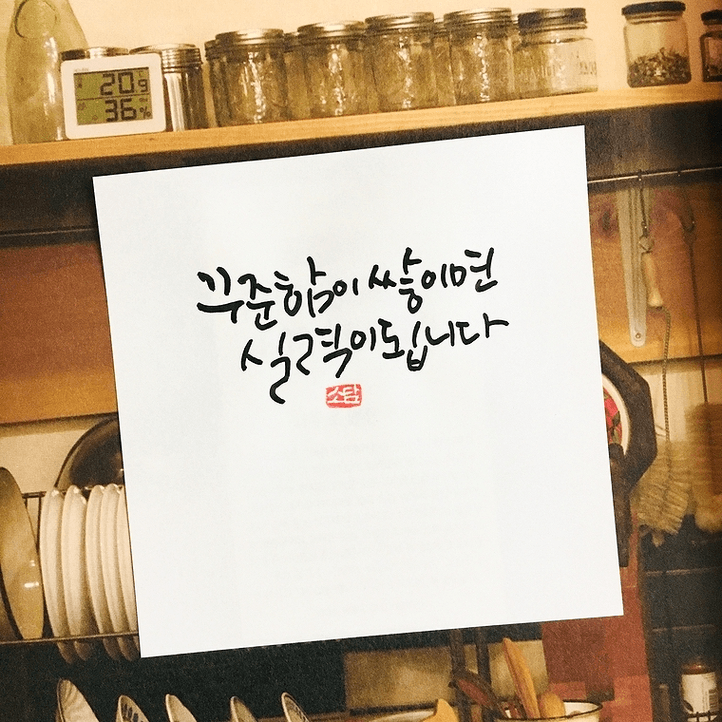 20.9
36%
꾸준함이 쌓이면
실력이 됩니다
소담